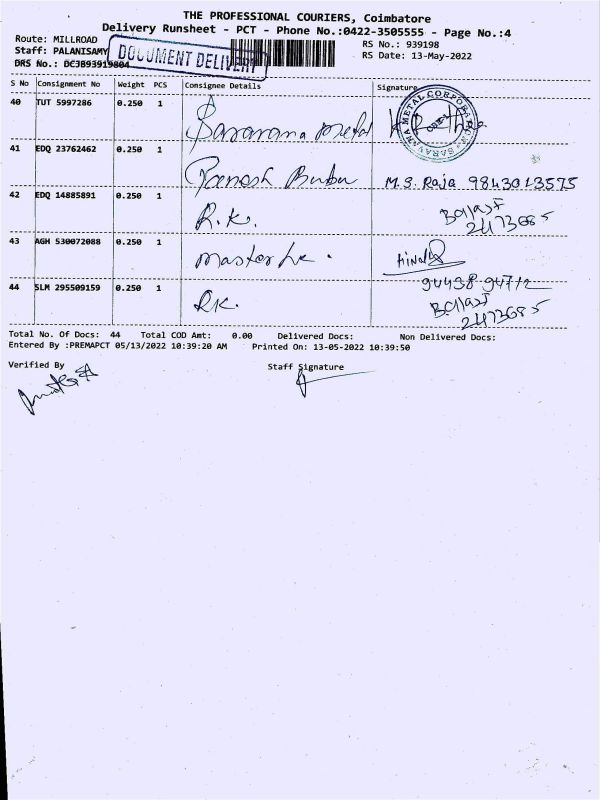 THE PROFESSIONAL COURIERS, Coimbatore
Delivery Runsheet - PCT - Phone No.:0422-3505555 - Page No.:4
Route: MILLROAD
RS No.: 939198
Staff: PALANISAMY
DOCUMENT DELIVERY
RS Date: 13-May-2022
DRS No.: DCJB93919804
S No Consignment No Weight PCS Consignee Details Signature
40 TUT 5997286 0.250 1 Saravana metal
SARAVANA METAL CORPORATION
41 EDQ 23762462 0.250 1 Ganesh Babu M.S. Raja 9843013575
42 EDQ 14885891 0.250 1 R.K.
2473685
43 AGH 530072088 0.250 1 master
94438 94712
44 SLM 295509159 0.250 1 RK.
2473685
Total No. Of Docs: 44 Total COD Amt: 0.00 Delivered Docs: Non Delivered Docs:
Entered By :PREMAPCT 05/13/2022 10:39:20 AM Printed On: 13-05-2022 10:39:50
Verified By Staff Signature